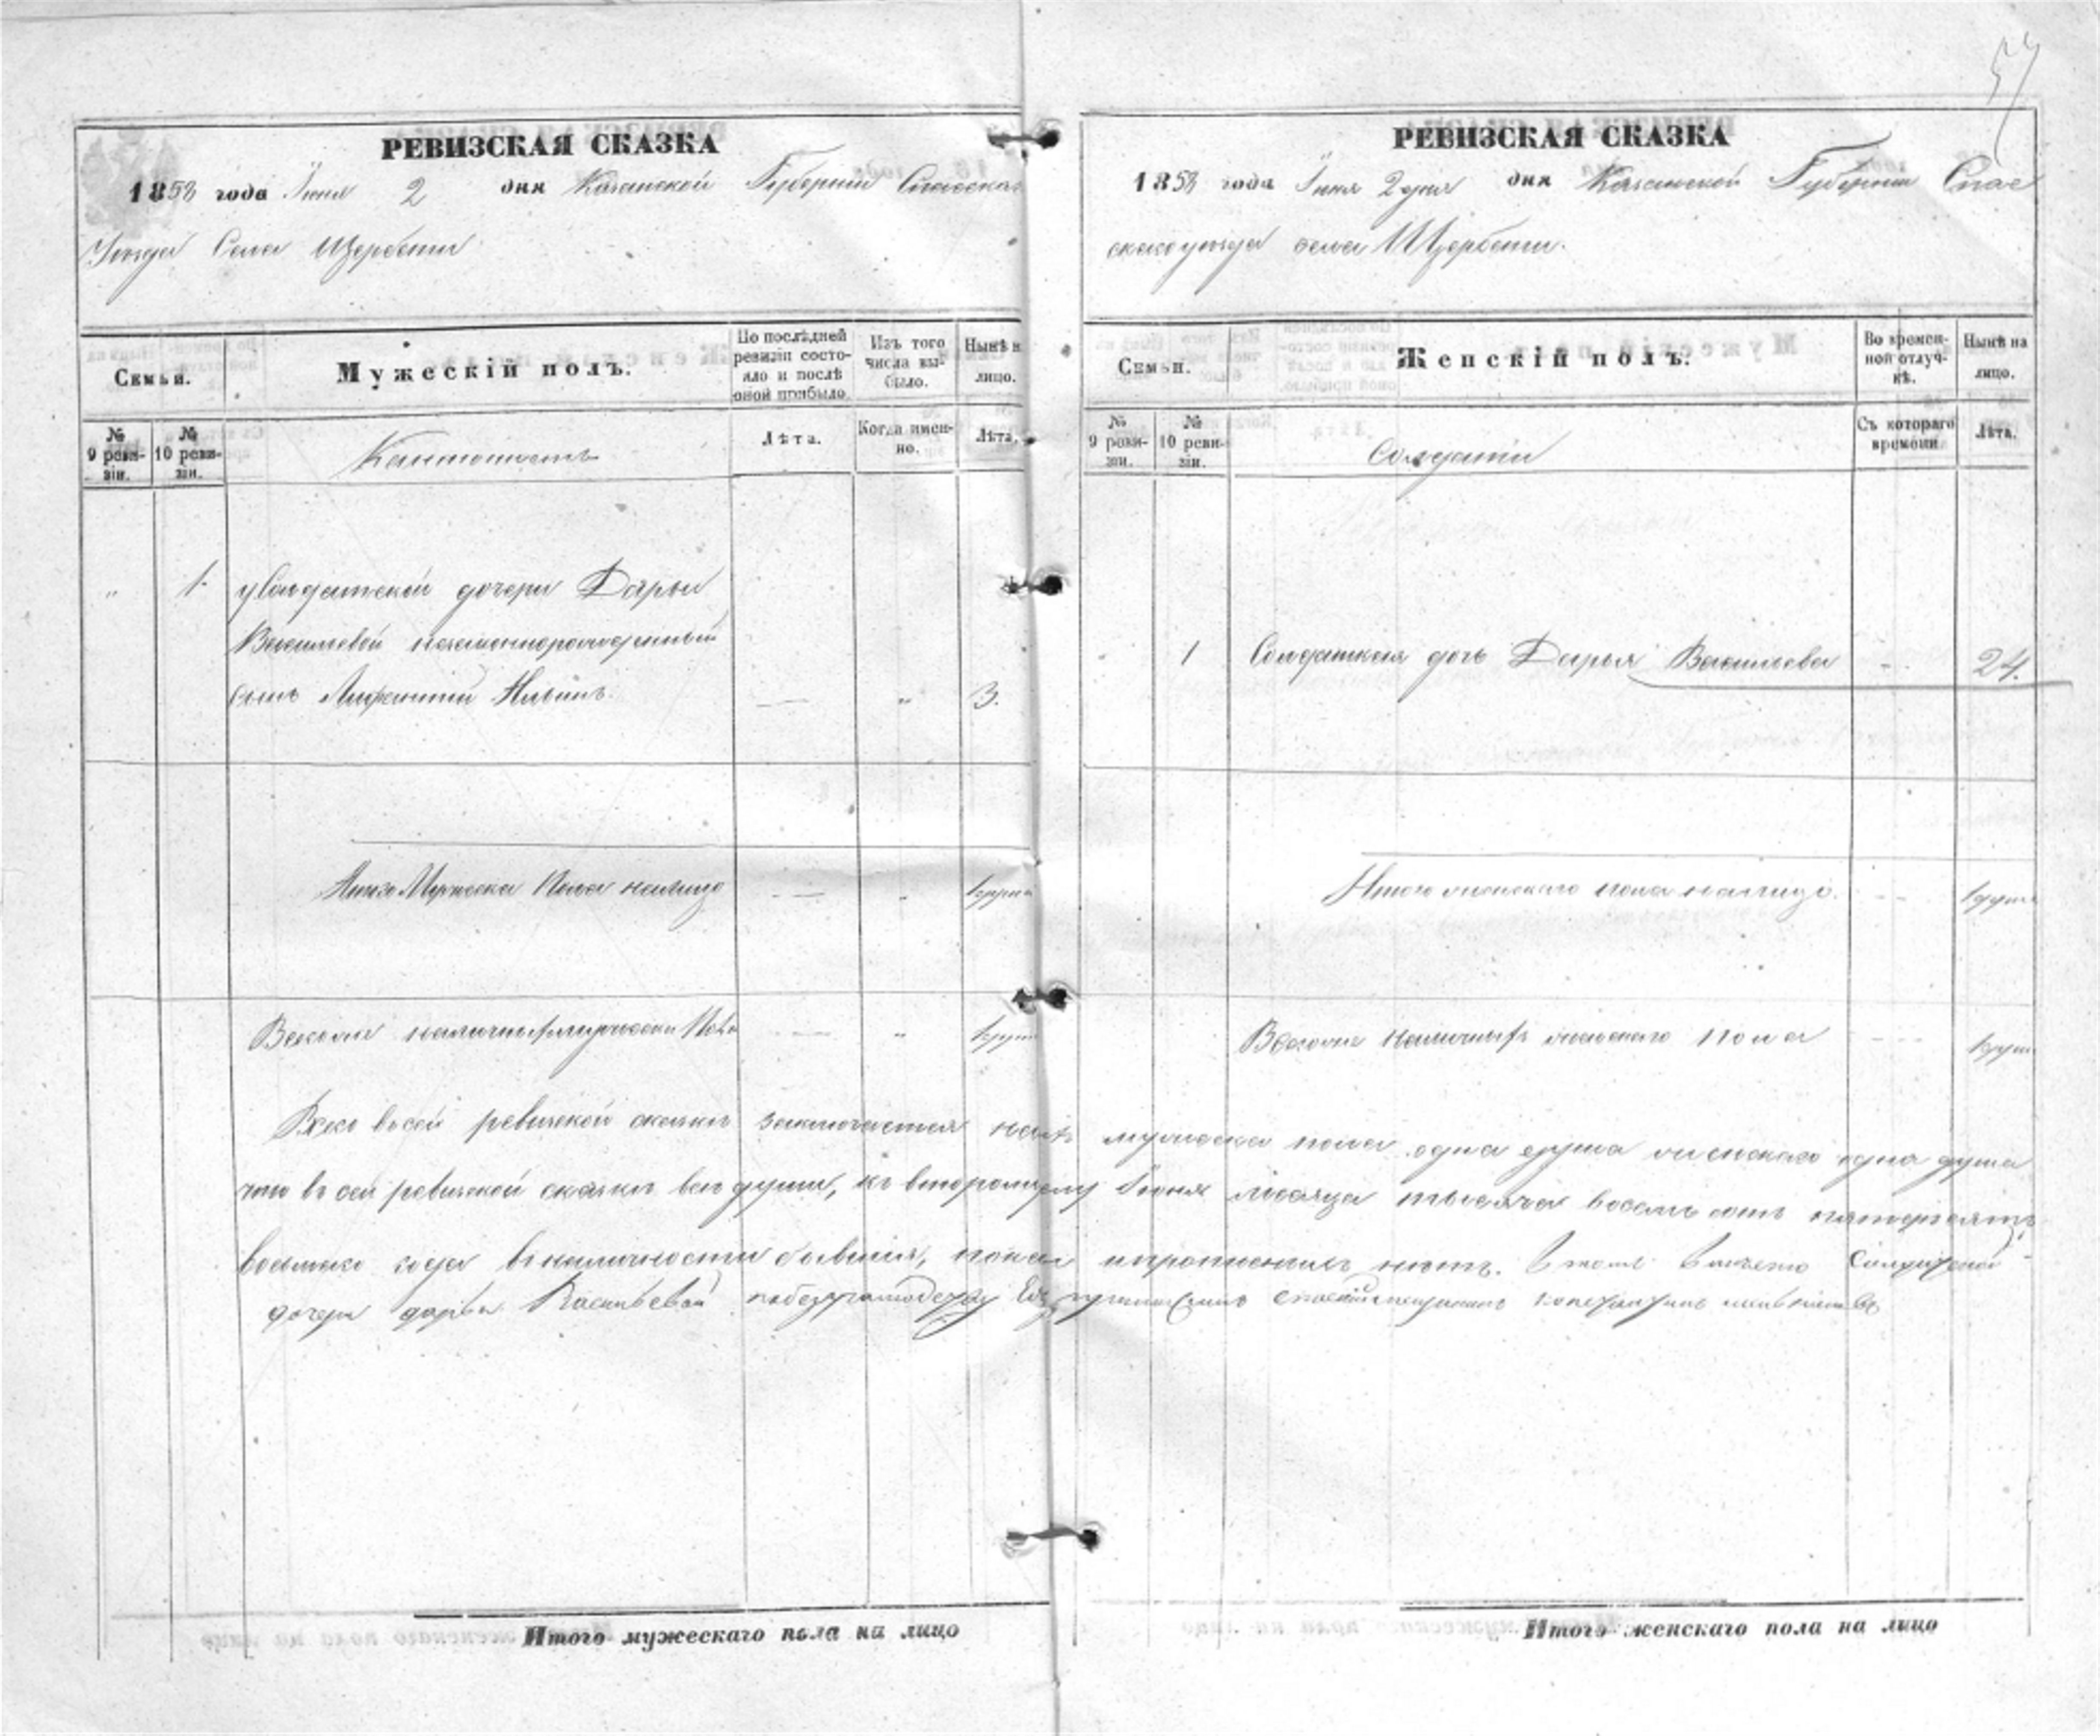 57
РЕВИЗСКАЯ СКАЗКА
1858 года Іюня 2 дня Казанской Губерніи Спасскаго
Уѣзда Села Щербети
Семьи.
Мужескій полъ.
По послѣдней ревизіи состояло и послѣ оной прибыло
Изъ того числа выбыло.
Нынѣ на лицо.
№ 9 ревизіи.
№ 10 ревизіи.
Кантонистъ
Лѣта.
Когда именно.
Лѣта.
" 1. у Солдатской дочери Дарьи
Васильевой незаконнорожденный
сынъ — " 3.
Итого Мужеска Пола налицо — " 1 душа
Всехъ наличныхъ мужеска Пола — " 1 душа
РЕВИЗСКАЯ СКАЗКА
1858 года Іюня 2 дня дня Казанской Губерніи Спас
скаго уѣзда села Щербети.
Семьи.
Женскій полъ.
Во временной отлучкѣ.
Нынѣ на лицо.
№ 9 ревизіи.
№ 10 ревизіи.
Съ котораго времени.
Лѣта.
1 Солдатская дочь Дарья Васильева - 24.
Итого женскаго пола налицо. - - 1 душа
наличныхъ женскаго пола - - - 1 душа
Всего въ сей ревизской сказкѣ заключается мужеска пола одна душа женскаго одна душа
что въ сей ревизской сказкѣ все души, ко второму Іюня месяца тысяча восемь сотъ пятьдесятъ
восьмаго года въ наличности бывшія, нетъ. Въ томъ Солдатской
дочери дарьи Васильевой
Итого мужескаго пола на лицо
Итого женскаго пола на лицо